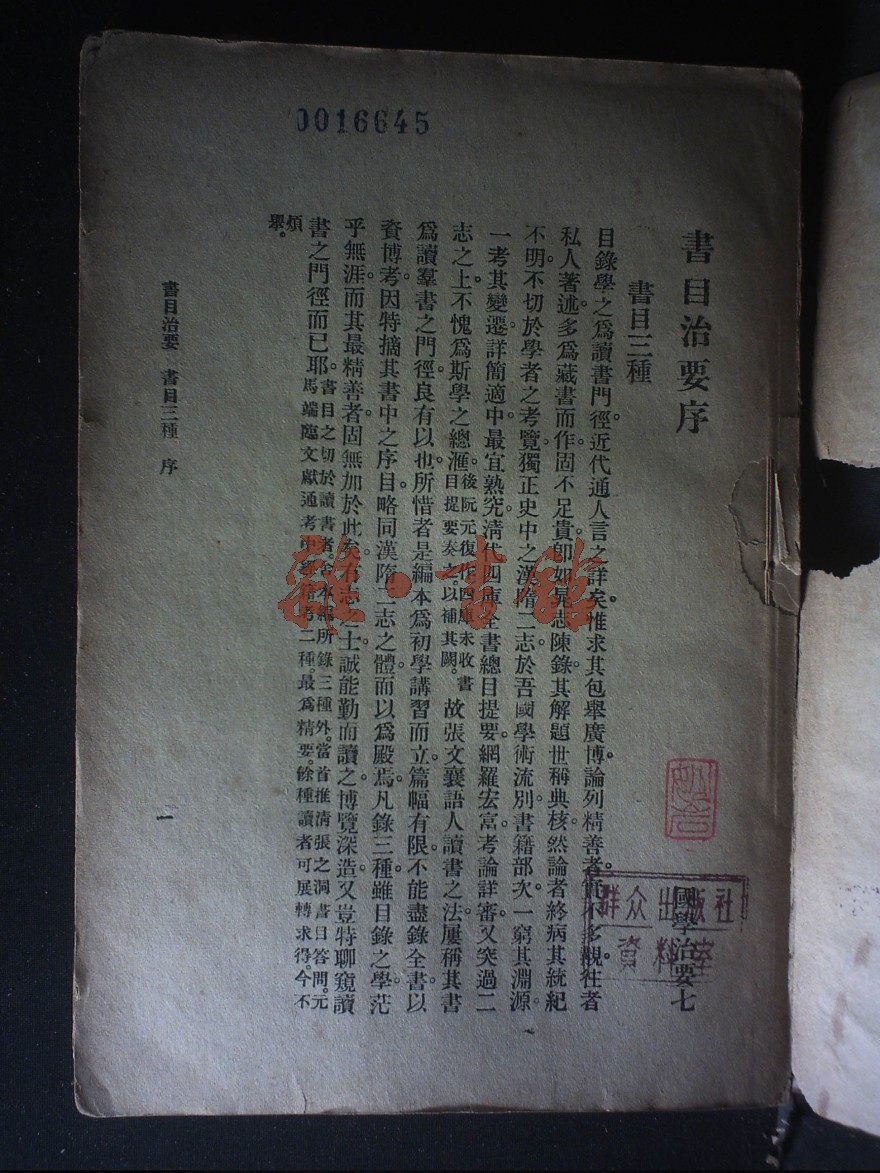 0016645
書目治要序
國學治要七
書目三種
群众出版社
資料室
目錄學之爲讀書門徑。近代通人言之詳矣。惟求其包舉廣博。論列精善者。實不多覯。往者
私人著述。多爲藏書而作。固不足貴。卽如晁志陳錄。其解題世稱典核。然論者終病其統紀
不明。不切於學者之考覽。獨正史中之漢隋二志。於吾國學術流別。書籍部次。一窮其淵源。
一考其變遷。詳簡適中。最宜熟究。淸代四庫全書總目提要。網羅宏富。考論詳審。又突過二
志之上。不愧爲斯學之總滙。後阮元復作四庫未收書目提要奏之。以補其闕。故張文襄語人讀書之法。屢稱其書
爲讀羣書之門徑。良有以也。所惜者是編本爲初學講習而立。篇幅有限。不能盡錄全書以
資博考。因特摘其書中之序目。略同漢隋二志之體。而以爲殿焉。凡錄三種。雖目錄之學。茫
乎無涯。而其最精善者。固無加於此矣。有志之士。誠能勤而讀之。博覽深造。又豈特聊窺讀
書之門徑而已耶。書目之切於讀書者。舍本編所錄三種外。當首推清張之洞書目答問。元馬端臨文獻通考中經籍考二種。最爲精要。餘種讀者可展轉求得。今不
煩舉。
書目治要 書目三種 序
一
雜·書館